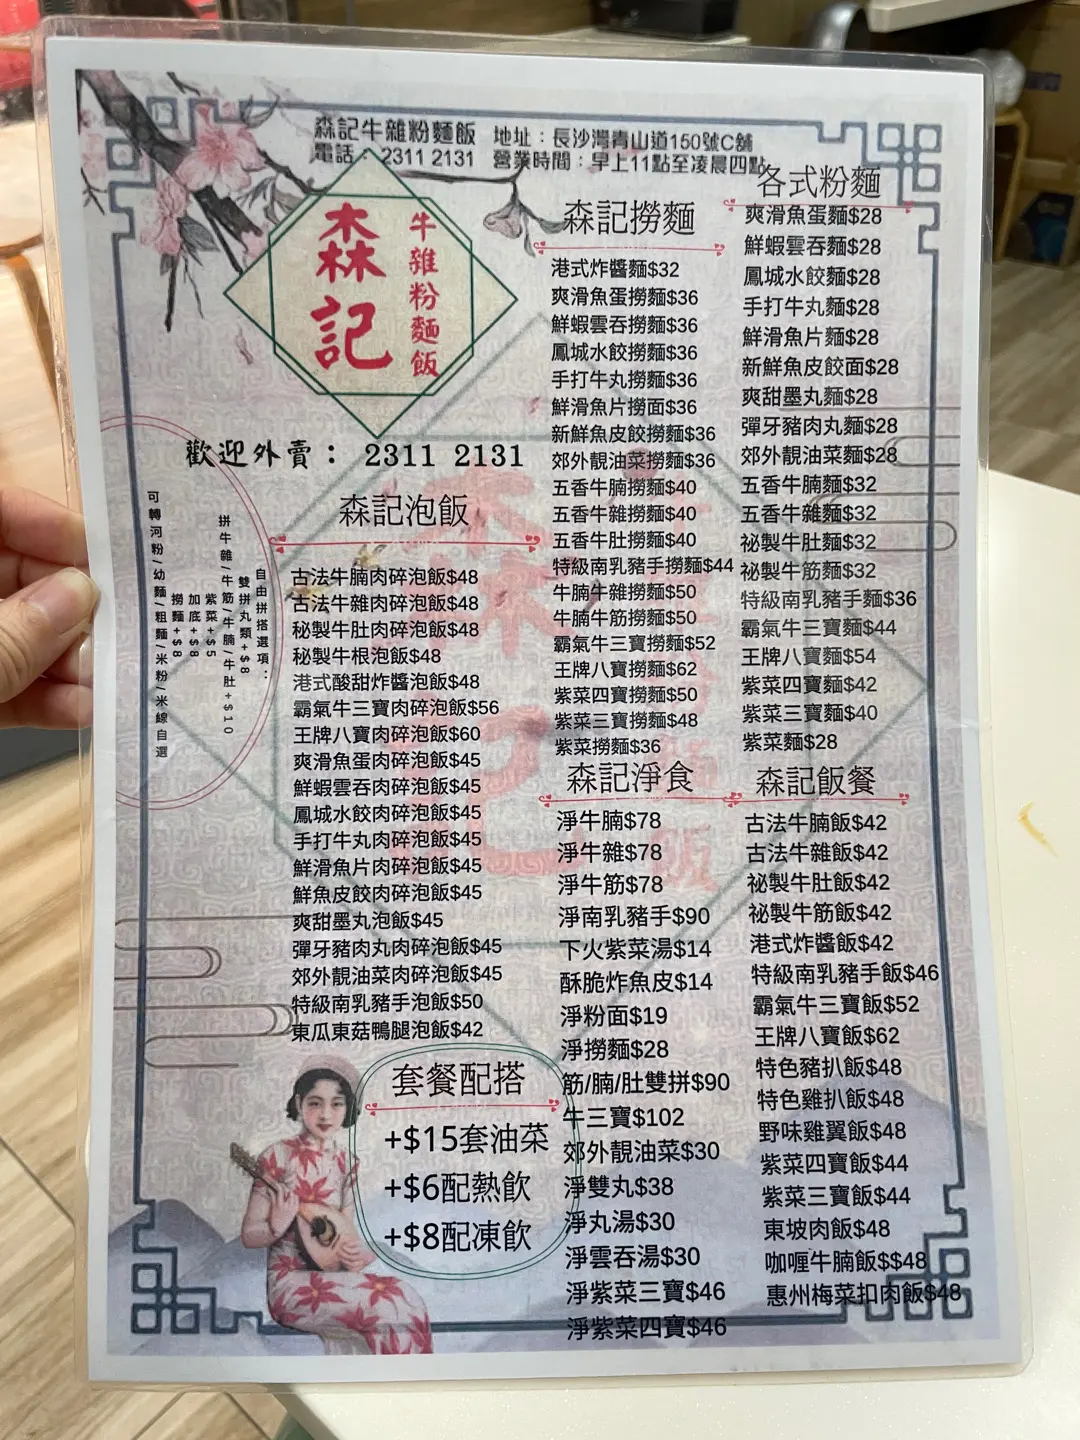 森記牛雜粉麵飯 地址：長沙灣青山道150號C舖
電話：2311 2131 營業時間：早上11點至凌晨四點
森記
牛雜粉麵飯
歡迎外賣： 2311 2131
自由拼搭選項：
雙拼丸類+$8
拼牛雜/牛筋/牛腩/牛肚+$10
紫菜+$5
加底+$8
撈麵+$8
可轉河粉/幼麵/粗麵/米粉/米線自選
森記泡飯
古法牛腩肉碎泡飯$48
古法牛雜肉碎泡飯$48
秘製牛肚肉碎泡飯$48
秘製牛根泡飯$48
港式酸甜炸醬泡飯$48
霸氣牛三寶肉碎泡飯$56
王牌八寶肉碎泡飯$60
爽滑魚蛋肉碎泡飯$45
鮮蝦雲吞肉碎泡飯$45
鳳城水餃肉碎泡飯$45
手打牛丸肉碎泡飯$45
鮮滑魚片肉碎泡飯$45
鮮魚皮餃肉碎泡飯$45
爽甜墨丸泡飯$45
彈牙豬肉丸肉碎泡飯$45
郊外靚油菜肉碎泡飯$45
特級南乳豬手泡飯$50
東瓜東菇鴨腿泡飯$42
套餐配搭
+$15套油菜
+$6配熱飲
+$8配凍飲
森記撈麵
港式炸醬麵$32
爽滑魚蛋撈麵$36
鮮蝦雲吞撈麵$36
鳳城水餃撈麵$36
手打牛丸撈麵$36
鮮滑魚片撈面$36
新鮮魚皮餃撈麵$36
郊外靚油菜撈麵$36
五香牛腩撈麵$40
五香牛雜撈麵$40
五香牛肚撈麵$40
特級南乳豬手撈麵$44
牛腩牛雜撈麵$50
牛腩牛筋撈麵$50
霸氣牛三寶撈麵$52
王牌八寶撈麵$62
紫菜四寶撈麵$50
紫菜三寶撈麵$48
紫菜撈麵$36
森記淨食
淨牛腩$78
淨牛雜$78
淨牛筋$78
淨南乳豬手$90
下火紫菜湯$14
酥脆炸魚皮$14
淨粉面$19
淨撈麵$28
筋/腩/肚雙拼$90
牛三寶$102
郊外靚油菜$30
淨雙丸$38
淨丸湯$30
淨雲吞湯$30
淨紫菜三寶$46
淨紫菜四寶$46
各式粉麵
爽滑魚蛋麵$28
鮮蝦雲吞麵$28
鳳城水餃麵$28
手打牛丸麵$28
鮮滑魚片麵$28
新鮮魚皮餃面$28
爽甜墨丸麵$28
彈牙豬肉丸麵$28
郊外靚油菜麵$28
五香牛腩麵$32
五香牛雜麵$32
祕製牛肚麵$32
祕製牛筋麵$32
特級南乳豬手麵$36
霸氣牛三寶麵$44
王牌八寶麵$54
紫菜四寶麵$42
紫菜三寶麵$40
紫菜麵$28
森記飯餐
古法牛腩飯$42
古法牛雜飯$42
祕製牛肚飯$42
祕製牛筋飯$42
港式炸醬飯$42
特級南乳豬手飯$46
霸氣牛三寶飯$52
王牌八寶飯$62
特色豬扒飯$48
特色雞扒飯$48
野味雞翼飯$48
紫菜四寶飯$44
紫菜三寶飯$44
東坡肉飯$48
咖喱牛腩飯$$48
惠州梅菜扣肉飯$48